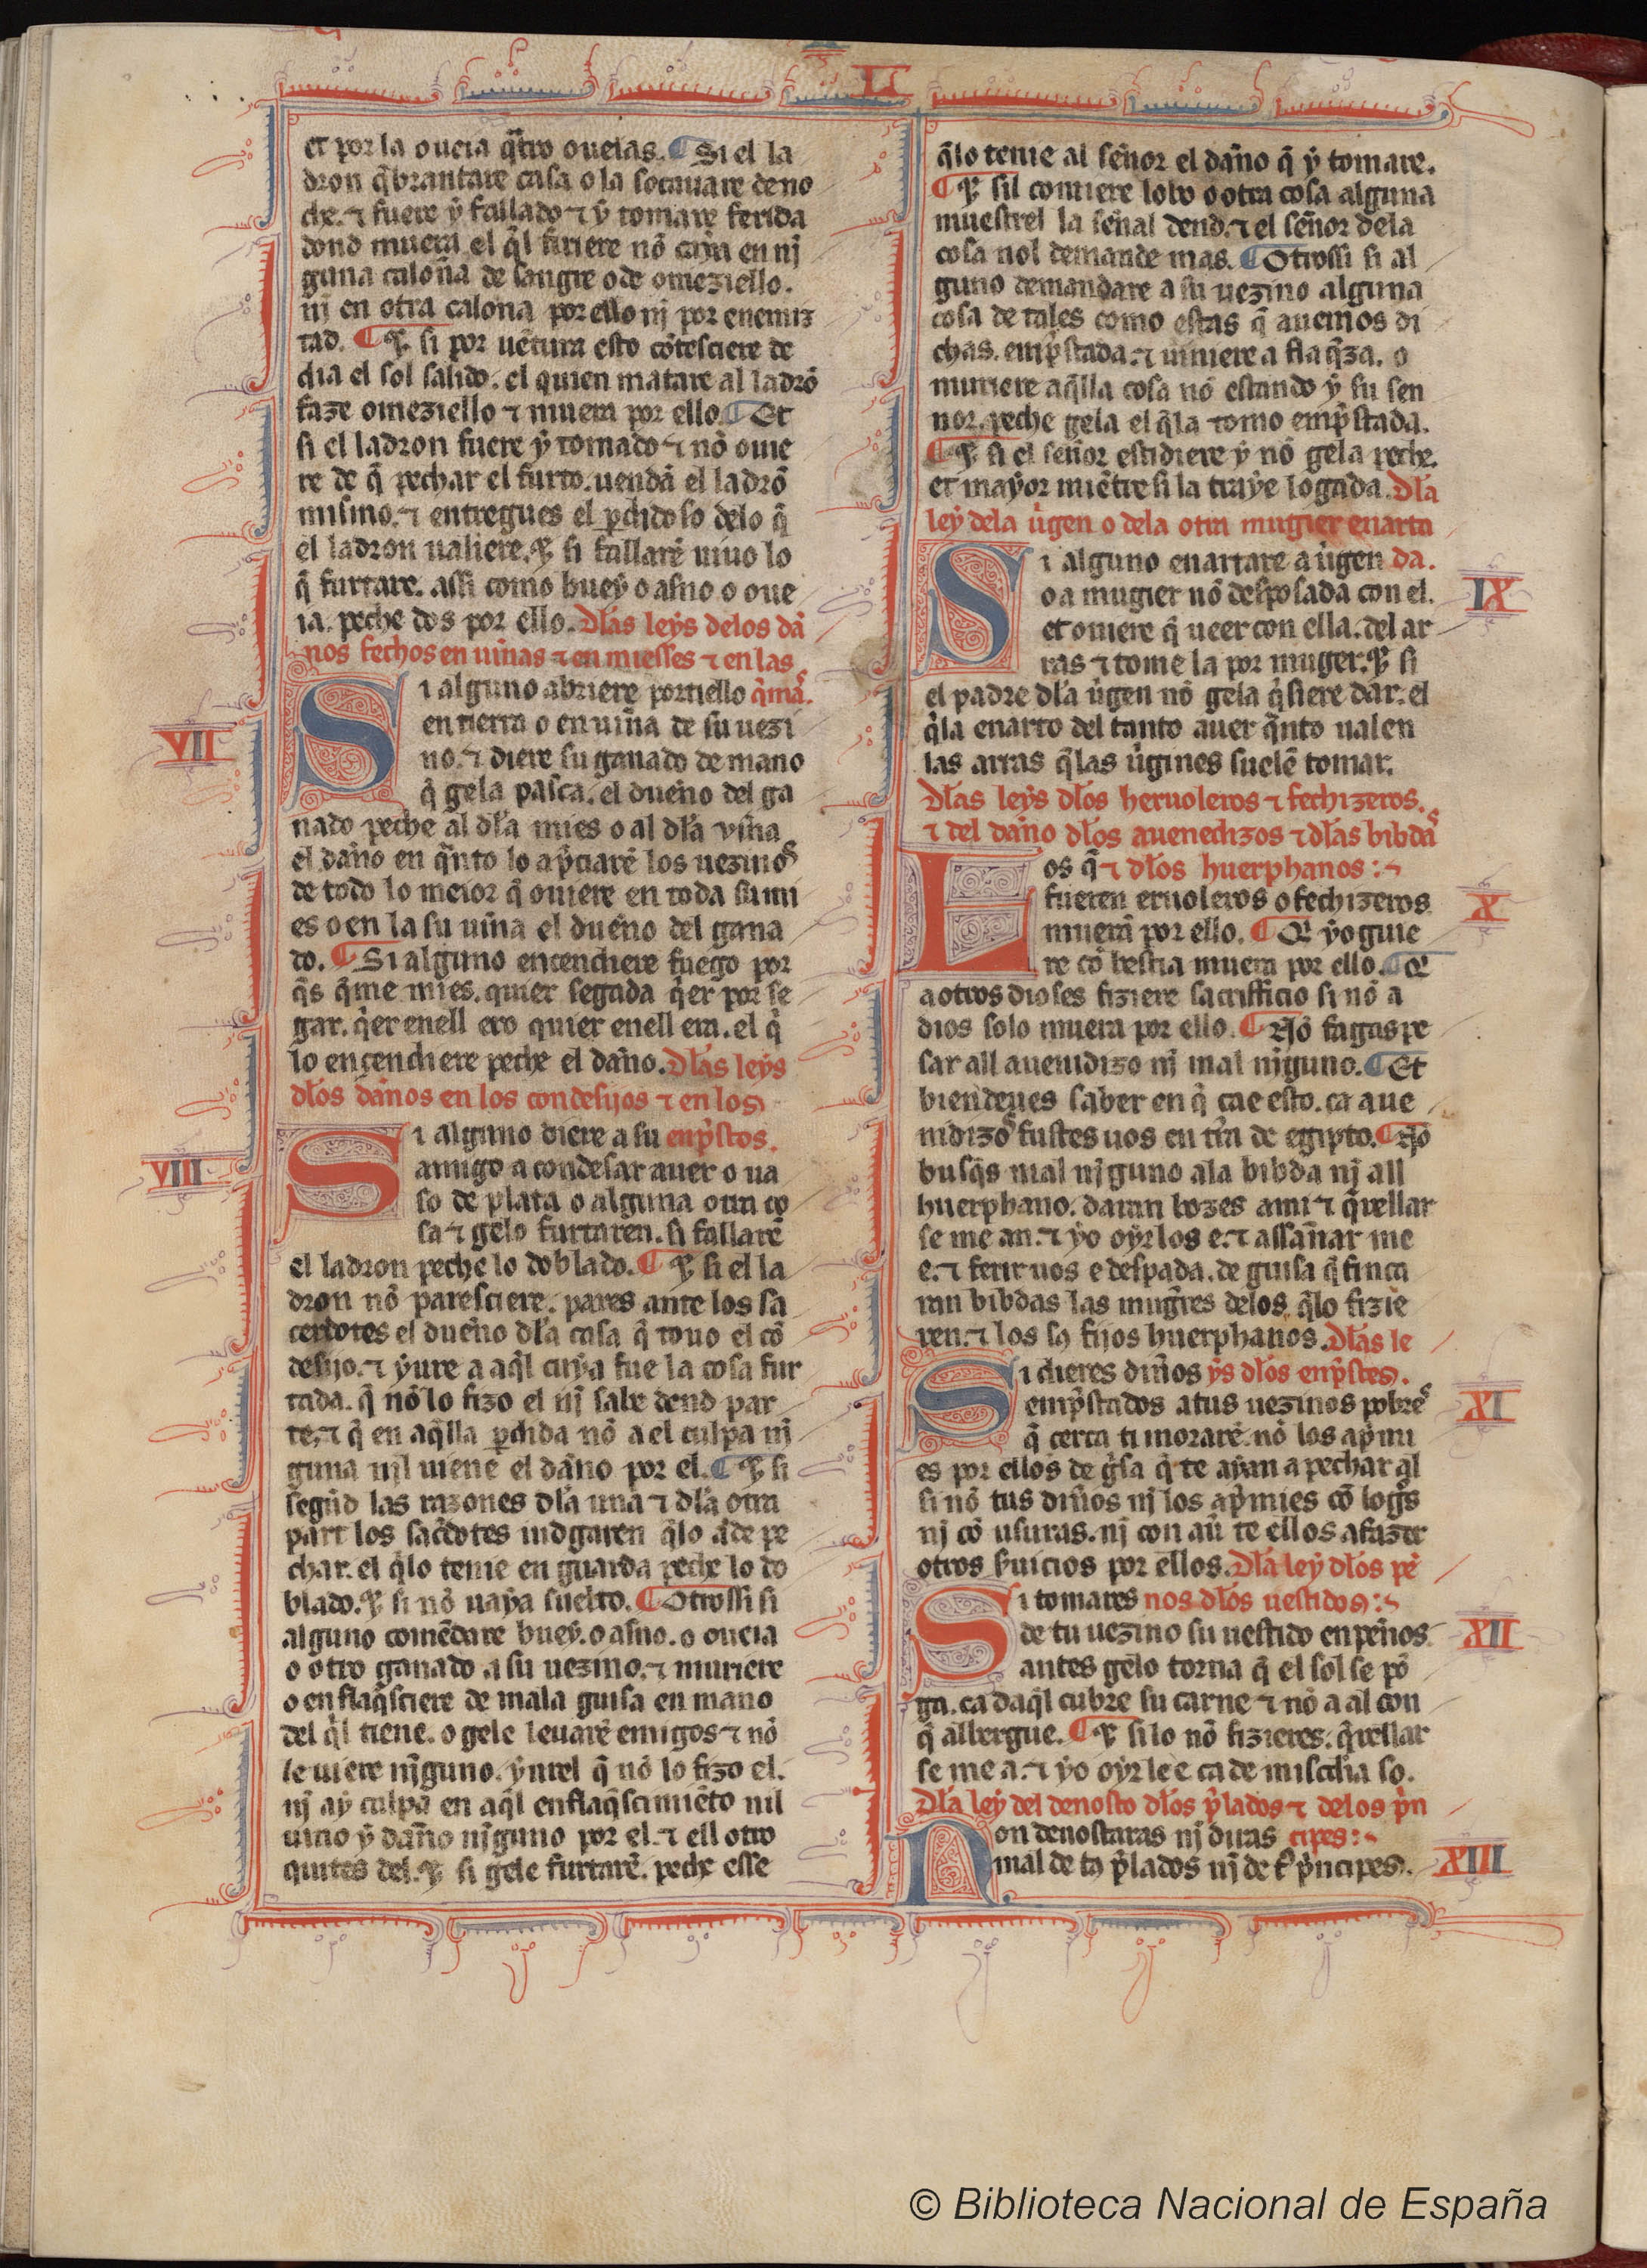 LI
et por la oueia q̃tro oueias. ¶ Si el la
dron q̃brantare casa o la socauare de no
che. ⁊ fuere ẏ fallado ⁊ ẏ tomare ferida
dond muera el q̃l firiere nõ caya en nj̃
guna calonña de sangre o de omeziello.
nj̃ en otra calona por ello nj̃ por enemiz
tad. ¶ E si por uẽtura esto cõtesciere de
dia el sol salido. el quien matare al ladrõ
faze omeziello ⁊ muera por ello. ¶ Et
si el ladron fuere ẏ tomado ⁊ nõ ouie
re de q̃ pechar el furto. uendã el ladrõ
mismo. ⁊ entregues el ꝑdidoso delo q̃
el ladron ualiere. E si fallarẽ uiuo lo
q̃ furtare. assi como buey o asno o oue
ia. peche dos por ello. Dlas leẏs delos dã
nos fechos en uinas ⁊ en miesses ⁊ en las
VII
Si alguno abriere portiello q̃mas.
en tierra o en uinña de su uezi
no. ⁊ diere su ganado de mano
q̃ gela pasca. el dueno del ga
nado peche al dla mies o al dla uinña
el danño en q̃nto lo ap̃ciarẽ los uezinos
de todo lo meior q̃ ouiere en toda su mi
es o en la su uinña el dueno del gana
do. ¶ Si alguno encendiere fuego por
q̃s q̃me mies. quier segada q̃er por se
gar. q̃er enell ero quier enell era. el q̃
lo encendiere peche el danño. Dlas leẏs
dlos danños en los condesijos ⁊ en los
VIII
Si alguno diere a su enp̃stos.
amigo a condesar auer o ua
so de plata o alguna otra co
sa ⁊ gelo furtaren. si fallarẽ
el ladron peche lo doblado. ¶ E si el la
dron nõ paresciere. pares ante los sa
cerdotes el dueño dla casa q̃ touo el cõ
desijo. ⁊ ẏure a aq̃l cuẏa fue la cosa fur
tada. q̃ nõ lo fizo el nj̃ sabe dend par
te. ⁊ q̃ en aq̃lla ꝑdida nõ a el culpa nj̃
guna nil uiene el danño por el. ¶ E si
segũd las razones dla una ⁊ dla otra
part los sac̃dotes iudgaren q̃lo a de pe
char. el q̃lo tenie en guarda peche lo do
blado. E si nõ uaẏa suelto. ¶ Otrossi si
alguno comẽdare buey. o asno. o oueia
o otro ganado a su uezino. ⁊ muriere
o enflaq̃sciere de mala guisa en mano
del q̃l tiene. o gele leuarẽ emigos ⁊ nõ
le uiere nj̃guno. ẏurel q̃ nõ lo fizo el.
nj̃ aẏ culpa en aq̃l enflaq̃scimiẽto nil
uino ẏ danño nj̃guno por el. ⁊ ell otro
quites del. E si gele furtarẽ. peche esse
q̃lo tenie al señor el danño q̃ ẏ tomare.
¶ E sil comiere lobo o otra cosa alguna
muestrel la señal dend. ⁊ el señor dela
cosa nol demande mas. ¶ Otrossi si al
guno demandare a su uezino alguna
cosa de tales como estas q̃ auemos di
chas. emp̃stada. ⁊ uiniere a flaq̃za. o
muriere aq̃lla cosa nõ estando ẏ su sen
nor. peche gela el q̃la tomo emp̃stada.
¶ E si el señor estidiere ẏ nõ gela peche.
et mayor miẽtre si la traẏe logada. Dla
leẏ dela ũgen o dela otra mugier enarta
IX
Si alguno enartare a ũgen da.
o a mugier nõ desposada con el.
et ouiere q̃ ueer con ella. del ar
ras ⁊ tome la por muger. E si
el padre dla ũgen nõ gela q̃siere dar. el
q̃la enarto del tanto auer q̃nto ualen
las arras q̃las ũgines suelẽ tomar.
Dlas leẏs dlos heruoleros ⁊ fechizeros.
⁊ del danño dlos auenedizos ⁊ dlas bibdas
X
Los q̃ ⁊ dlos huerphanos:
fueren eruoleros o fechizeros
muerã por ello. ¶ Q̃ ẏoguie
re cõ bestia muera por ello. ¶ Q̃
a otros dioses fiziere sacrifficio si nõ a
dios solo muera por ello. ¶ Nõ fagas pe
sar all auenidizo nj̃ mal nj̃guno. ¶ Et
biendeues saber en q̃ cae esto. ca aue
nidizos fustes uos en trã de egipto. ¶ Nõ
busq̃s mal nj̃guno ala bibda nj̃ all
huerphano. daran bozes ami ⁊ q̃rellar
se me an. ⁊ ẏo oẏr los e. ⁊ assanñar me
e. ⁊ ferir uos e despada. de guisa q̃ finca
ran bibdas las mugr̃es delos q̃lo fizie
ren. ⁊ los sꝯ fijos huerphanos. Dlas le
XI
Si dieres din̄os ẏs dlos enp̃stes.
emp̃stados atus uezinos pobres
q̃ cerca ti morarẽ. nõ los ap̃mi
es por ellos de g̃sa q̃ te aẏan a pechar al
si nõ tus din̄os nj̃ los ap̃mies cõ logs
nj̃ cõ usuras. nj̃ con aũ te ellos a fazer
otros s̃uicios por ellos. Dla leẏ dlos pẽ
XII
Si tomares nos dlos uestidos:
de tu uezino su uestido en penños
antes gelo torna q̃ el sol se põ
ga. ca daq̃l cubre su carne ⁊ nõ a al con
q̃ albergue. ¶ E silo nõ fizieres. q̃rellar
se me a. ⁊ ẏo oẏr le e ca de misc̃dia so.
Dla leẏ del denosto dlos p̃lados ⁊ delos p̃n
XIII
Non denostaras nj̃ diras cipes:
mal de tꝯ p̃lados nj̃ de tꝯ p̃ncipes.
© Biblioteca Nacional de España